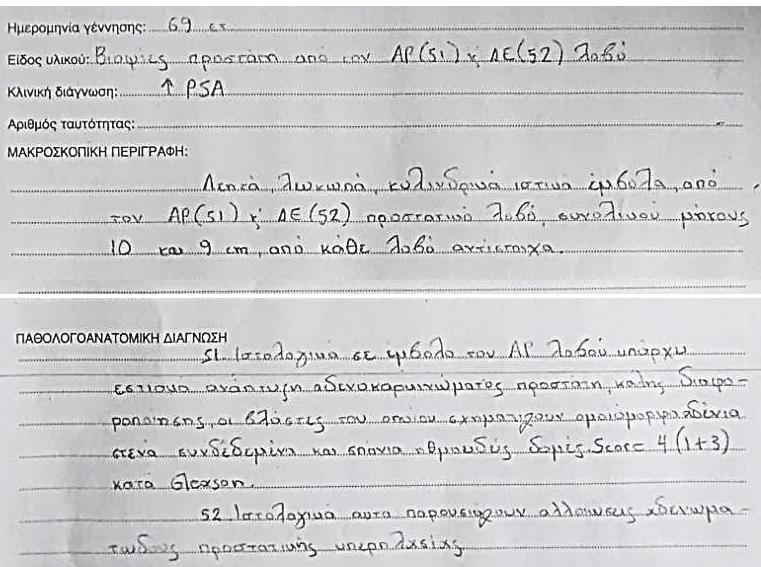 Ημερομηνία γέννησης: 69 ετ
Είδος υλικού: Βιοψίες προστάτη από τον ΑΡ(S1) κ ΔΕ(S2) λοβό
Κλινική διάγνωση: ↑ PSA
Αριθμός ταυτότητας:
ΜΑΚΡΟΣΚΟΠΙΚΗ ΠΕΡΙΓΡΑΦΗ:
Λεπτά, λευκωπά, κυλινδρικά ιστικά έμβολα, από
τον ΑΡ(S1) κ' ΔΕ(S2) προστατικό λοβό, συνολικού μήκους
10 και 9 cm, από κάθε λοβό αντίστοιχα.
ΠΑΘΟΛΟΓΟΑΝΑΤΟΜΙΚΗ ΔΙΑΓΝΩΣΗ
S1. Ιστολογικά σε έμβολο του ΑΡ λοβού υπάρχει
εστιακά ανάπτυξη αδενοκαρκινώματος προστάτη, καλής διαφο-
ροποίησης, οι βλάστες του οποίου σχηματίζουν ομοιόμορφα αδένια
στενά συνδεδεμένα και σπάνια ηθμοειδείς δομές. Score 4 (1+3)
κατά Gleason.
S2. Ιστολογικά αυτά παρουσιάζουν αλλοιώσεις αδενωμα-
τώδους προστατικής υπερπλασίας